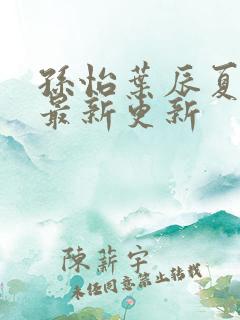 孫怡葉辰夏
最新更新
陳薪宇
未经同意禁止转载